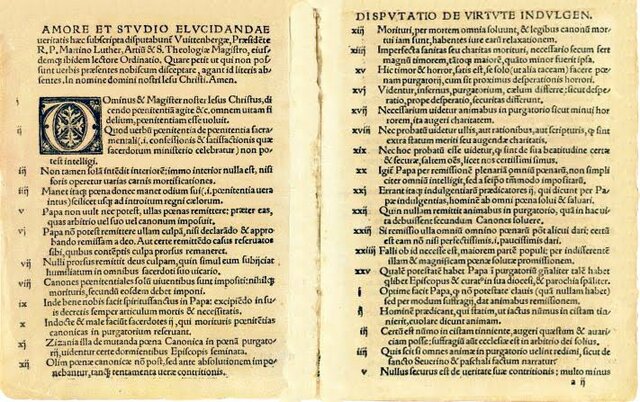 AMORE ET STVDIO ELVCIDANDAE
ueritatis hæc subscripta disputabunť Vuittenbergæ, Præsidẽte
R. P. Martino Luther, Artiũ & S. Theologiæ Magistro, eius-
demq; ibidem lectore Ordinatio. Quare petit ut qui non pos-
sunt uerbis præsentes nobiscum disceptare, agant id literis ab-
sentes. In nomine domini nostri Iesu Christi. Amen.
i DOminus & Magister noster Iesus Christus, di-
cendo pœnitentiã agite &c, omnem uitam fi
delium, pœnitentiam esse uoluit.
ij Quod uerbũ pœnitentia de pœnitentia sacra-
mentali, (.i. confessionis & satisfactionis quæ
sacerdotum ministerio celebratur) non po-
test intelligi.
iij Non tamen solã intẽdit interiorẽ: immo interior nulla est, nisi
foris operetur uarias carnis mortificationes.
iiij Manet itaq; pœna donec manet odium sui, (.i. pœnitentia uera
intus) scilicet usq; ad introitum regni cælorum.
v Papa non uult nec potest, ullas pœnas remittere: præter eas,
quas arbitrio uel suo uel canonum imposuit.
vi Papa nõ potest remittere ullam culpã, nisi declarãdo & appro-
bando remissam a deo. Aut certe remittẽdo casus reseruatos
sibi, quibus contẽptis culpa prorsus remaneret.
vij Nulli prorsus remittit deus culpam, quin simul eum subijciat
humiliatum in omnibus sacerdoti suo uicario.
viij Canones pœnitentiales solũ uiuentibus sunt impositi: nihilq;
morituris, secundũ eosdem debet imponi.
ix Inde bene nobis facit spiritussanctus in Papa: excipiẽdo in su-
is decretis semper articulum mortis & necessitatis.
x Indocte & male faciũt sacerdotes ij, qui morituris pœnitẽtias
canonicas in purgatorium reseruant.
xi Zizania illa de mutanda pœna Canonica in pœnã purgato-
rij, uidentur certe dormientibus Episcopis seminata.
xij Olim pœnæ canonicæ nõ post, sed ante absolutionem impo-
nebantur, tanq̃ tentamenta ueræ contritionis.
DISPVTATIO DE VIRTVTE INDVLGEN.
xiij Morituri, per mortem omnia soluunt, & legibus canonũ mor-
tui iam sunt, habentes iure earũ relaxationem.
xiiij Imperfecta sanitas seu charitas morituri, necessario secum fert
magnũ timorem, tãtoq; maiorẽ, quãto minor fuerit ipsa.
xv Hic timor & horror, satis est, se solo (ut alia taceam) facere pœ-
nam purgatorij, cum sit proximus desperationis horrori.
xvi Videntur, infernus, purgatorium, cælum differre: sicut despe-
ratio, prope desperatio, securitas differunt.
xvij Necessarium uidetur animabus in purgatorio sicut minui hor-
rorem, ita augeri charitatem.
xviij Nec probatũ uidetur ullis, aut rationibus, aut scripturis, q̃ sint
extra statum meriti seu augendæ charitatis.
xix Nec hoc probatũ esse uidetur, q̃ sint de sua beatitudine certæ
& securæ, saltem oẽs, licet nos certissimi simus.
xx Igiť Papa per remissionẽ plenariã omniũ pœnarũ, non simpli
citer omniũ intelligit, sed a seipso tãtummodo impositarũ.
xxj Errant itaq; indulgentiarũ prædicatores ij, qui dicunt per Pa-
pæ indulgentias, hominẽ ab omni pœna solui & saluari.
xxij Quin nullam remittit animabus in purgatorio, quã in hac ui-
ta debuissent secundum Canones soluere.
xxiij Si remissio ulla omniũ omnino pœnarũ põt alicui dari; certũ
est eam nõ nisi perfectissimis, .i. paucissimis dari.
xxiiij Falli ob id necesse est, maiorem partẽ populi: per indifferentẽ
illam & magnificam pœnæ solutæ promissionem.
xxv Qualẽ potestatẽ habet Papa ĩ purgatoriũ gñaliter talẽ habet
quilibet Episcopus & curatꝰ in sua diocesi, & parochia spãliter.
i Optime facit Papa, q̃ nõ potestate clauis (quã nullam habet)
sed per modum suffragij, dat animabus remissionem.
ij Hominẽ prædicant, qui statim, ut iactus nũmus in cistam tin-
nierit, euolare dicunt animam.
iij Certũ est nũmo in cistam tinniente, augeri quæstum & auari-
ciam posse: suffragiũ aũt ecclesiæ est in arbitrio dei solius.
iiij Quis scit si omnes animæ in purgatorio uelint redimi, sicut de
sancto Seuerino & paschali factum narratur.
v Nullus securus est de ueritate suæ contritionis; multo minus
a ij